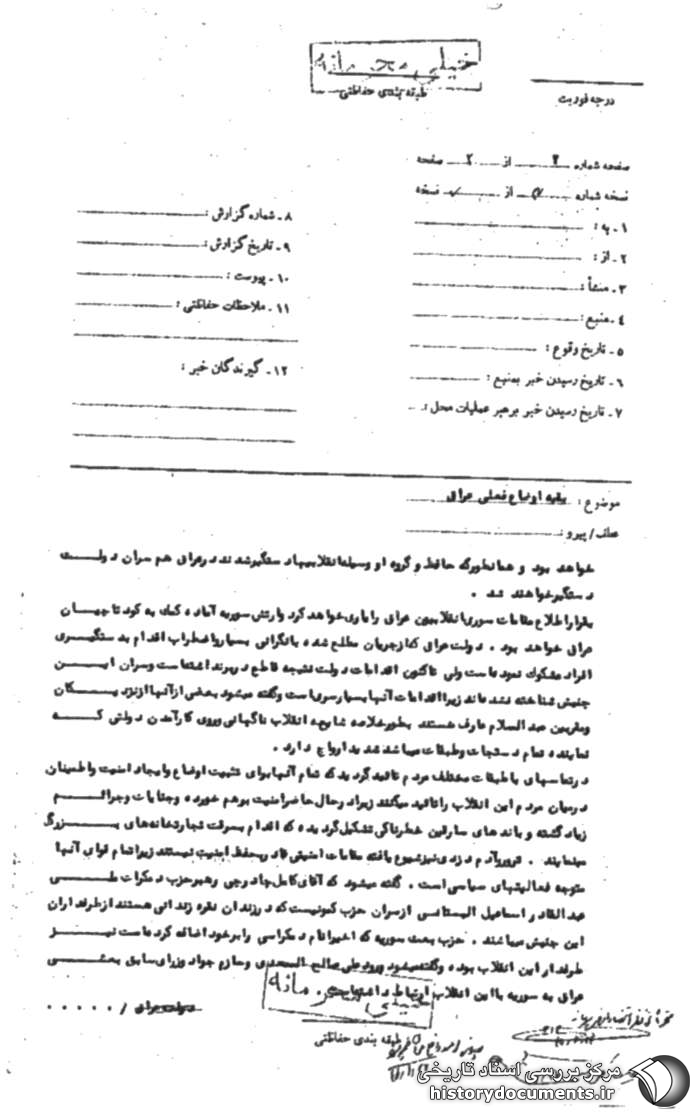 خیلی محرمانه
طبقه بندی حفاظتی
درجه فوریت
صفحه شماره ۲ از ۲ صفحه
نسخه شماره از نسخه
۱ـ به :
۲ـ از :
۳ـ منشأ :
۴ـ منبع :
۵ـ تاریخ وقوع :
۶ـ تاریخ رسیدن خبر بمنبع :
۷ـ تاریخ رسیدن خبر برهبر عملیات محل :
۸ـ شماره گزارش :
۹ـ تاریخ گزارش :
۱۰ـ پیوست :
۱۱ـ ملاحظات حفاظتی :
۱۲ـ گیرندگان خبر :
موضوع : بقیه اوضاع فعلی عراق
عطف / پیرو :
خواهد بود و همانطورکه حافظ و گروه او وسیله انقلابیها دستگیر شدند در عراق هم سران دولت
دستگیر خواهند شد .
بقرار اطلاع مقامات سوری انقلابیون عراقی را یاری خواهد کرد و ارتش سوریه آماده کمک به کودتاچیان
عراقی خواهد بود . دولت عراق که از جریان مطلع شده با نگرانی بسیار و اضطراب اقدام بدستگیری
افراد مشکوک نموده است ولی تاکنون اقدامات دولت نتیجه قاطع در بر نداشته است و سران این
جنبش شناخته نشده اند زیرا اقدامات آنها بسیار سری است و گفته میشود بعضی از آنها از نزدیکان
و مقربین عبدالسلام عارف هستند بطور خلاصه شایعه انقلاب ناگهانی و روی کار آمدن دولتی که
نماینده تمام دستجات و طبقات میباشد شدیدا رواج دارد .
در تماسهای با طبقات مختلف مردم تائید گردید که تمام آنها برای تثبیت اوضاع و ایجاد امنیت و اطمینان
در میان مردم این انقلاب را تائید میکنند زیرا در حال حاضر امنیت بر هم خورده و جنایات و جرائم
زیاد گشته و باند های سارقین خطرناکی تشکیل گردیده که اقدام بسرقت تجارتخانه های بزرگ
مینمایند . ترور و آدم دزدی نیز شیوع یافته مقامات امنیتی قادر بحفظ امنیت نیستند زیرا تمام قوای آنها
متوجه فعالیتهای سیاسی است . گفته میشود که آقای کامل چادرجی رهبر حزب دمکرات ملی
عبدالقادر اسماعیل البستانی از سران حزب کمونیست که در زندان نقره زندانی هستند از طرفداران
این جنبش میباشند . حزب بعث سوریه که اخیرا نام دمکراسی را بر خود اضافه کرده است نیز
طرفدار این انقلاب بوده و گفته میشود ورود علی صالح السعدی و حازم جواد وزرای سابق بعثی
عراق به سوریه با این انقلاب ارتباط داشته است
خیلی محرمانه
طبقه بندی حفاظتی
مرکز بررسی اسناد تاریخی
historydocuments.ir